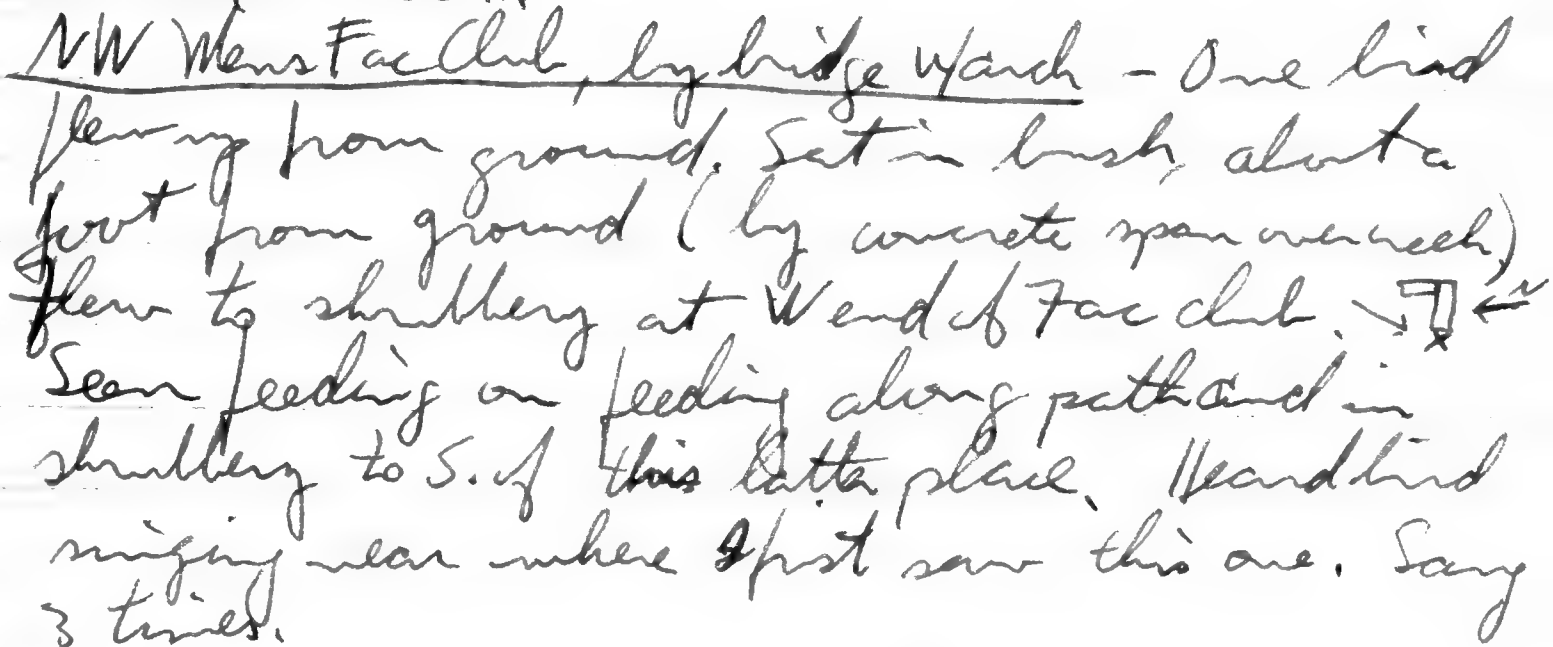 NW Mens Fac Club, by bridge W/arch - One bird
flew up from ground. Sat in bush, about a
foot from ground (by concrete span over creek)
flew to shrubbery at W end of Fac club. N
Seen feeding on feeding along path and in
shrubbery to S. of this latter place. Heard bird
singing near where I first saw this one. Sang
3 times.